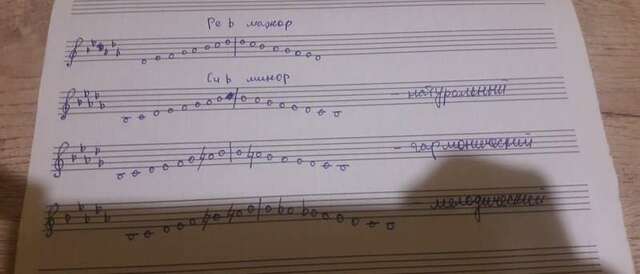 Ре b мажор
Си b минор
- натуральный
- гармонический
мелодический